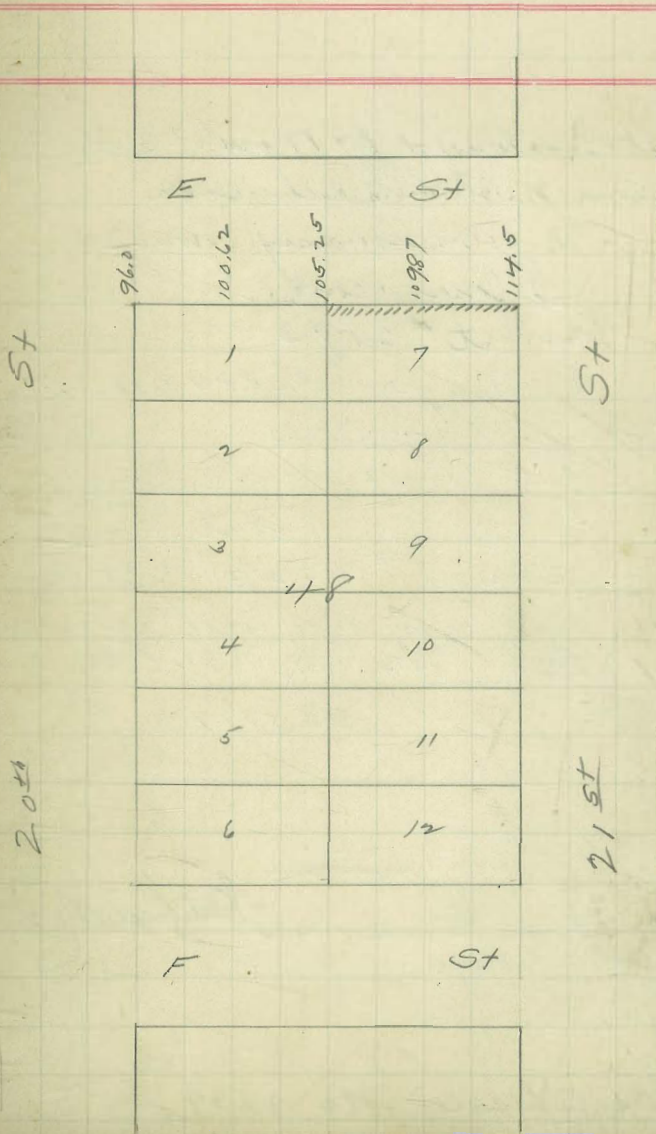 E St
96.0 100.62 105.25 109.87 114.5
St St
1 7
2 8
3 9
48
4 10
5 11
6 12
20th 21st
F St